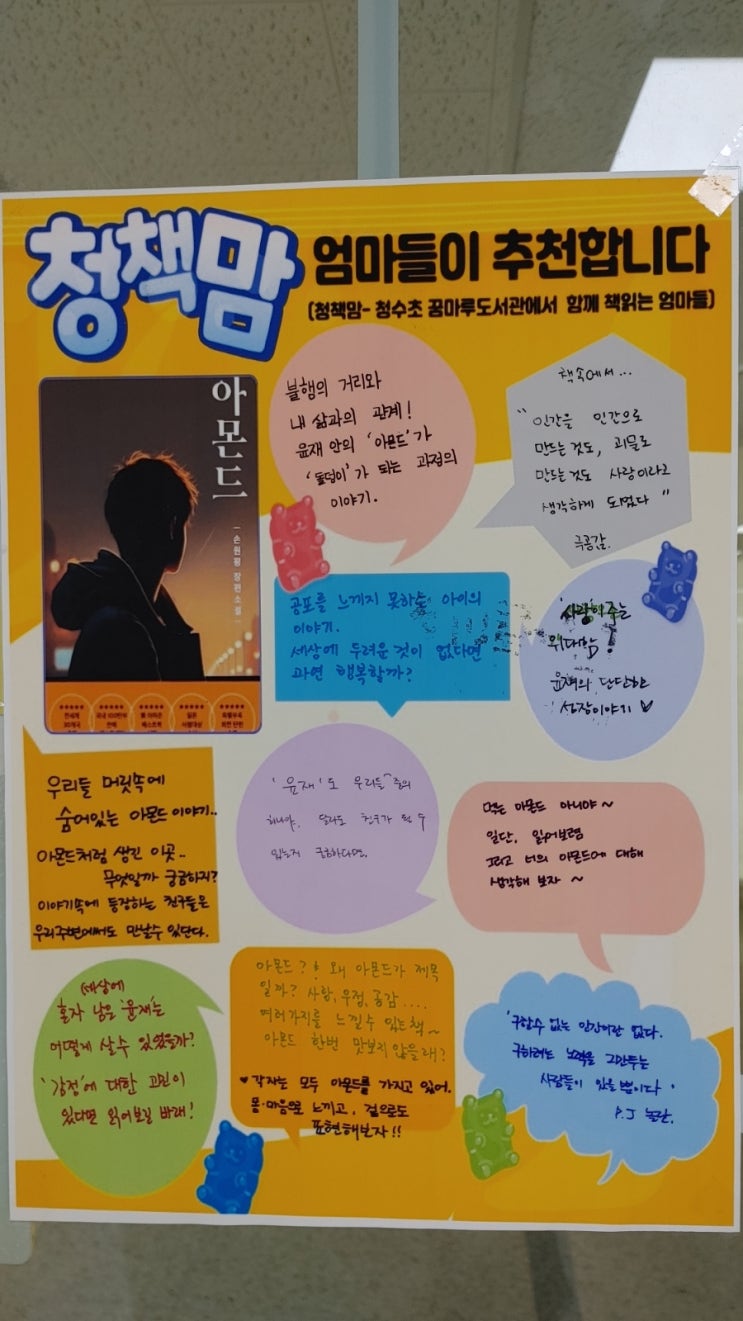 청책맘
엄마들이 추천합니다
(청책맘- 청수초 꿈마루도서관에서 함께 책읽는 엄마들)
아몬드
손원평 장편소설
불행의 거리와
내 삶과의 관계!
윤재 안의 '아몬드'가
'돌덩이'가 되는 과정의
이야기.
책속에서...
"인간을 인간으로
만드는것도, 괴물로
만드는것도 사랑이라고
생각하게 되었다"
극공감.
공포를 느끼지 못하는 아이의
이야기.
세상에 두려운것이 없다면
과연 행복할까?
사랑해주는
위대함!
윤재의 단단한
성장이야기 ♡
우리들 머릿속에
숨어있는 아몬드 이야기..
아몬드처럼 생긴 이곳..
무엇일까 궁금하지?
이야기속에 등장하는 친구들은
우리주변에서도 만날수 있단다.
'윤재'도 우리들 중의
하나야. 달라도 친구가 될 수
있는지 궁금하다면.
먹는 아몬드 아니야~
일단, 읽어보렴
그리고 너의 아몬드에 대해
생각해 보자 ~
세상에
혼자 남은 '윤재'는
어떻게 살수 있었을까?
'감정'에 대한 고민이
있다면 읽어보길 바래!
아몬드?! 왜 아몬드가 제목
일까? 사랑, 우정, 공감....
여러가지를 느낄수 있는책~
아몬드 한번 맛보지 않을래?
♥ 각자는 모두 아몬드를 가지고 있어.
몸·마음으로 느끼고, 겉으로도
표현해보자!!
'구할수 없는 인간이란 없다.
구하려는 노력을 그만두는
사람들이 있을 뿐이다'
P.J 놀란.